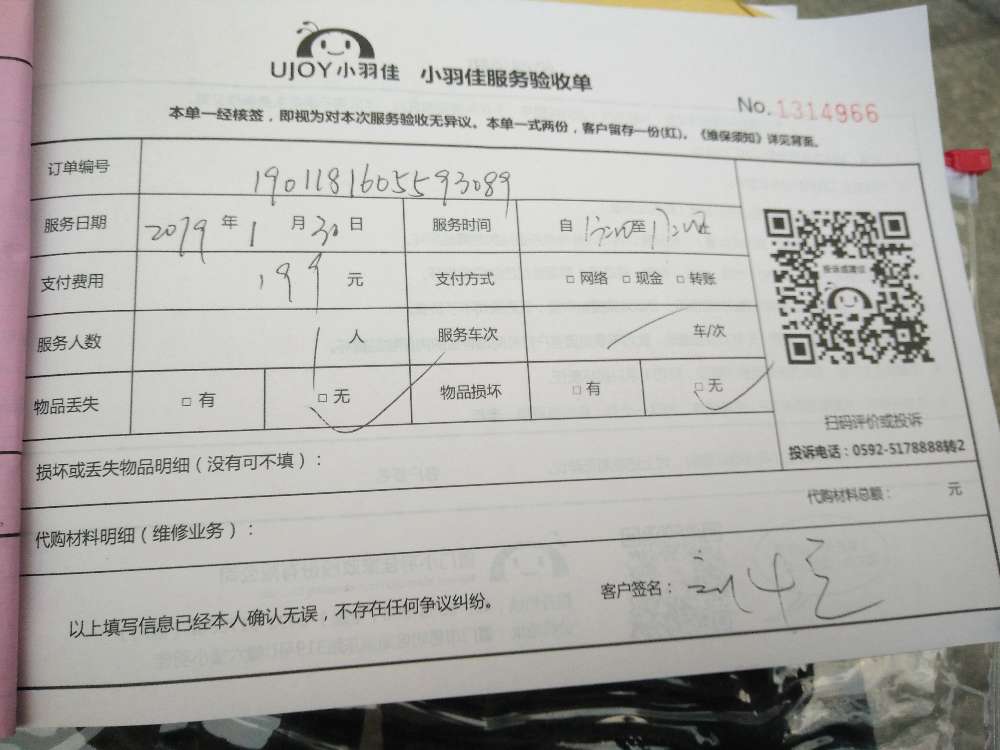 UJOY小羽佳 小羽佳服务验收单
No.1314966
本单一经核签，即视为对本次服务验收无异议。本单一式两份，客户留存一份(红)。《维保须知》详见背面。
订单编号 190118160559 3089
服务日期 2019 年 1 月 30 日 服务时间 自 至
支付费用 199 元 支付方式 □ 网络 □ 现金 □ 转账
服务人数 1 人 服务车次 车/次
物品丢失 □ 有 □ 无 物品损坏 □ 有 □ 无
投诉或建议
扫码评价或投诉
投诉电话：0592-5178888转2
损坏或丢失物品明细（没有可不填）：
代购材料明细（维修业务）： 代购材料总额： 元
以上填写信息已经本人确认无误，不存在任何争议纠纷。 客户签名：